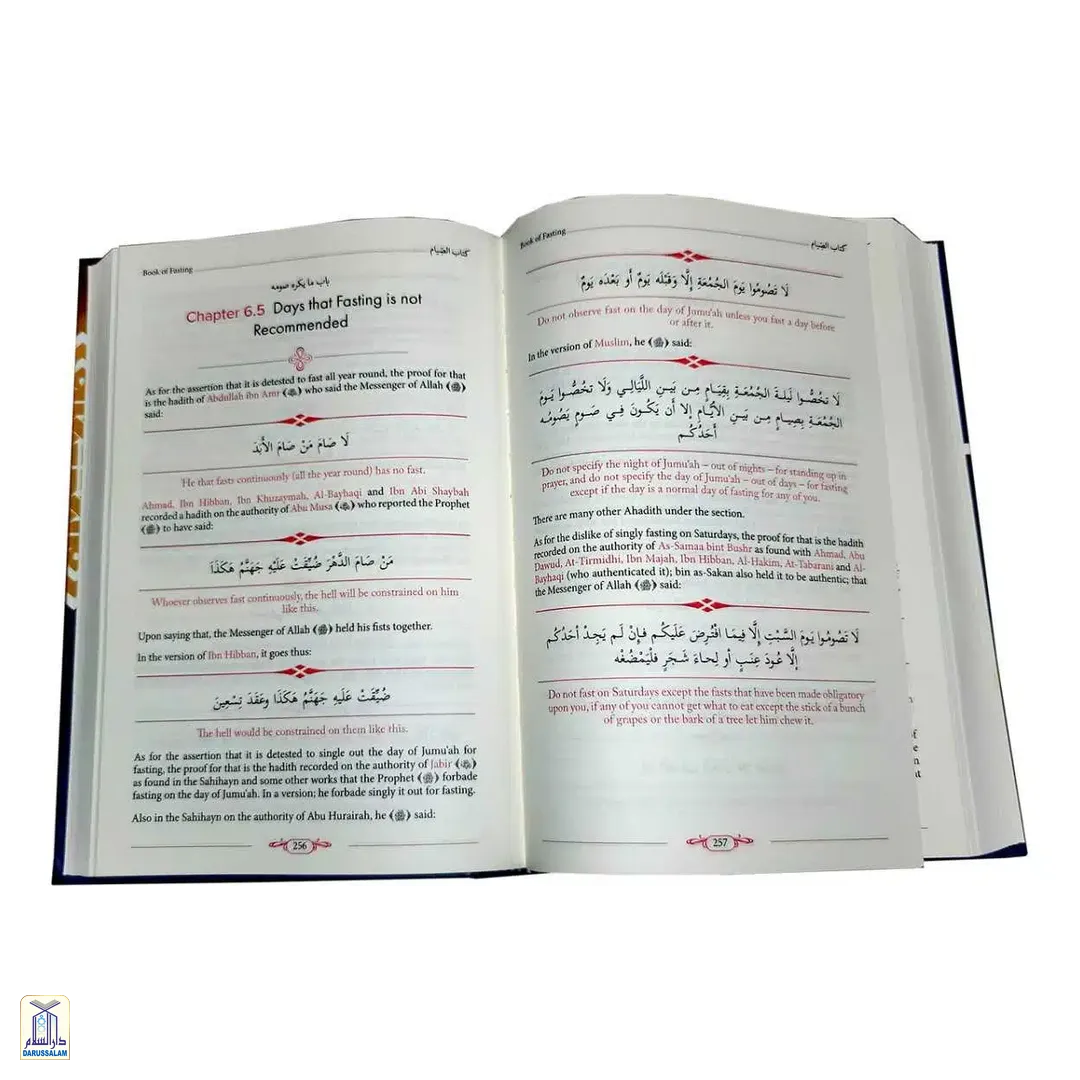 Book of Fasting
كتاب الصيام
باب ما يكره صومه
Chapter 6.5 Days that Fasting is not
Recommended
As for the assertion that it is detested to fast all year round, the proof for that
is the hadith of Abdullah ibn Amr who said the Messenger of Allah (ﷺ)
said:
لَا صَامَ مَنْ صَامَ الْأَبَدَ
He that fasts continuously (all the year round) has no fast.
Ahmad, Ibn Hibban, Ibn Khuzaymah, Al-Bayhaqi and Ibn Abi Shaybah
recorded a hadith on the authority of Abu Musa who reported the Prophet
(ﷺ) to have said:
مَنْ صَامَ الدَّهْرَ ضُيِّقَتْ عَلَيْهِ جَهَنَّمُ هَكَذَا
Whoever observes fast continuously, the hell will be constrained on him
like this.
Upon saying that, the Messenger of Allah (ﷺ) held his fists together.
In the version of Ibn Hibban, it goes thus:
ضُيِّقَتْ عَلَيْهِ جَهَنَّمُ هَكَذَا وعَقَدَ تِسْعِينَ
The hell would be constrained on them like this.
As for the assertion that it is detested to single out the day of Jumu'ah for
fasting, the proof for that is the hadith recorded on the authority of Jabir
as found in the Sahihayn and some other works that the Prophet (ﷺ) forbade
fasting on the day of Jumu'ah. In a version; he forbade singly it out for fasting.
Also in the Sahihayn on the authority of Abu Hurairah, he (ﷺ) said:
256
Book of Fasting
كتاب الصيام
لَا تَصُومُوا يَومَ الجُمُعَةِ إِلَّا وَقَبْلَه يَومٌ أَو بَعْدَه يَومٌ
Do not observe fast on the day of Jumu'ah unless you fast a day before
or after it.
In the version of Muslim, he (ﷺ) said:
لَا تَخُصُّوا لَيلةَ الجُمُعَةِ بِقِيَامٍ مِن بَينِ اللَّيَالِي وَلَا تَخُصُّوا يَومَ
الجُمُعَةِ بِصِيامٍ مِن بَينِ الأَيَّامِ إلا أَن يَكُونَ فِي صَومٍ يَصُومُه
أَحَدُكُم
Do not specify the night of Jumu'ah – out of nights – for standing up in
prayer, and do not specify the day of Jumu'ah – out of days – for fasting
except if the day is a normal day of fasting for any of you.
There are many other Ahadith under the section.
As for the dislike of singly fasting on Saturdays, the proof for that is the hadith
recorded on the authority of As-Samaa bint Bushr as found with Ahmad, Abu
Dawud, At-Tirmidhi, Ibn Majah, Ibn Hibban, Al-Hakim, At-Tabarani and Al-
Bayhaqi (who authenticated it); bin as-Sakan also held it to be authentic; that
the Messenger of Allah (ﷺ) said:
لَا تَصُومُوا يَومَ السَّبْتِ إِلَّا فِيمَا افْتُرِضَ عَلَيكُم فإِنْ لَم يَجِدْ أحَدُكُم
إلَّا عُودَ عِنَبٍ أو لِحاءَ شَجَرٍ فَلْيَمْضُغْه
Do not fast on Saturdays except the fasts that have been made obligatory
upon you, if any of you cannot get what to eat except the stick of a bunch
of grapes or the bark of a tree let him chew it.
257
دارالسلام
DARUSSALAM